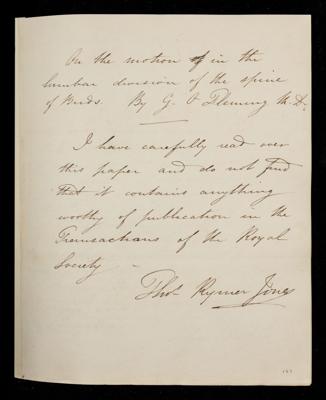 On the motion of in the
lumbar division of the spine
of Birds. By G. Fleming M.D.
I have carefully read over
this paper and do not find
that it contains anything
worthy of publication in the
Transactions of the Royal
Society -
Thos Rymer Jones